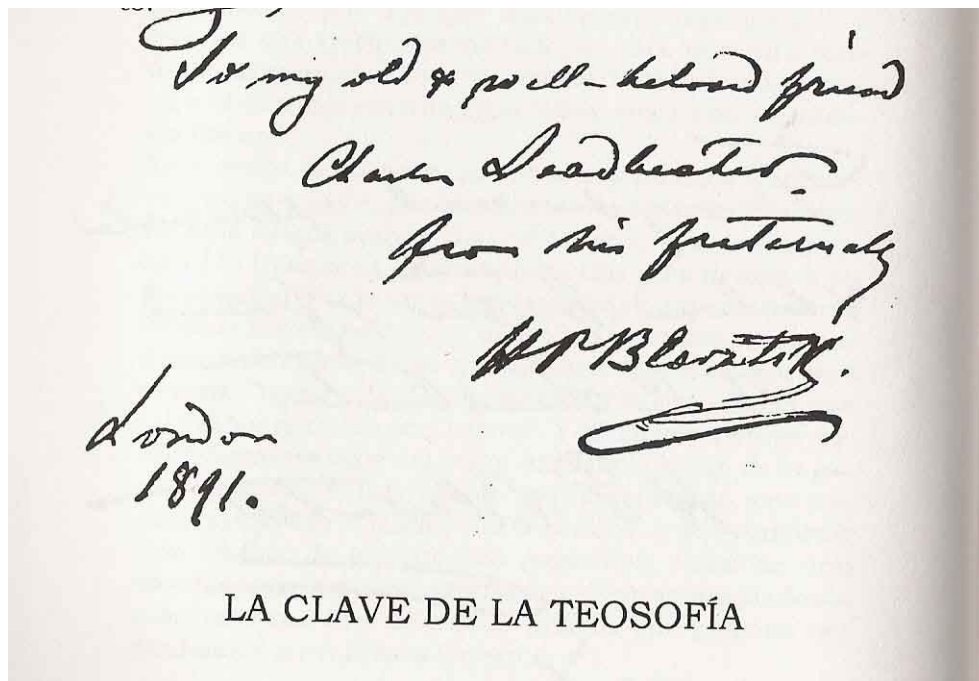 To my old & well-beloved friend
Charles Leadbeater.
from his fraternally
H P Blavatsky.
London
1891.
LA CLAVE DE LA TEOSOFÍA